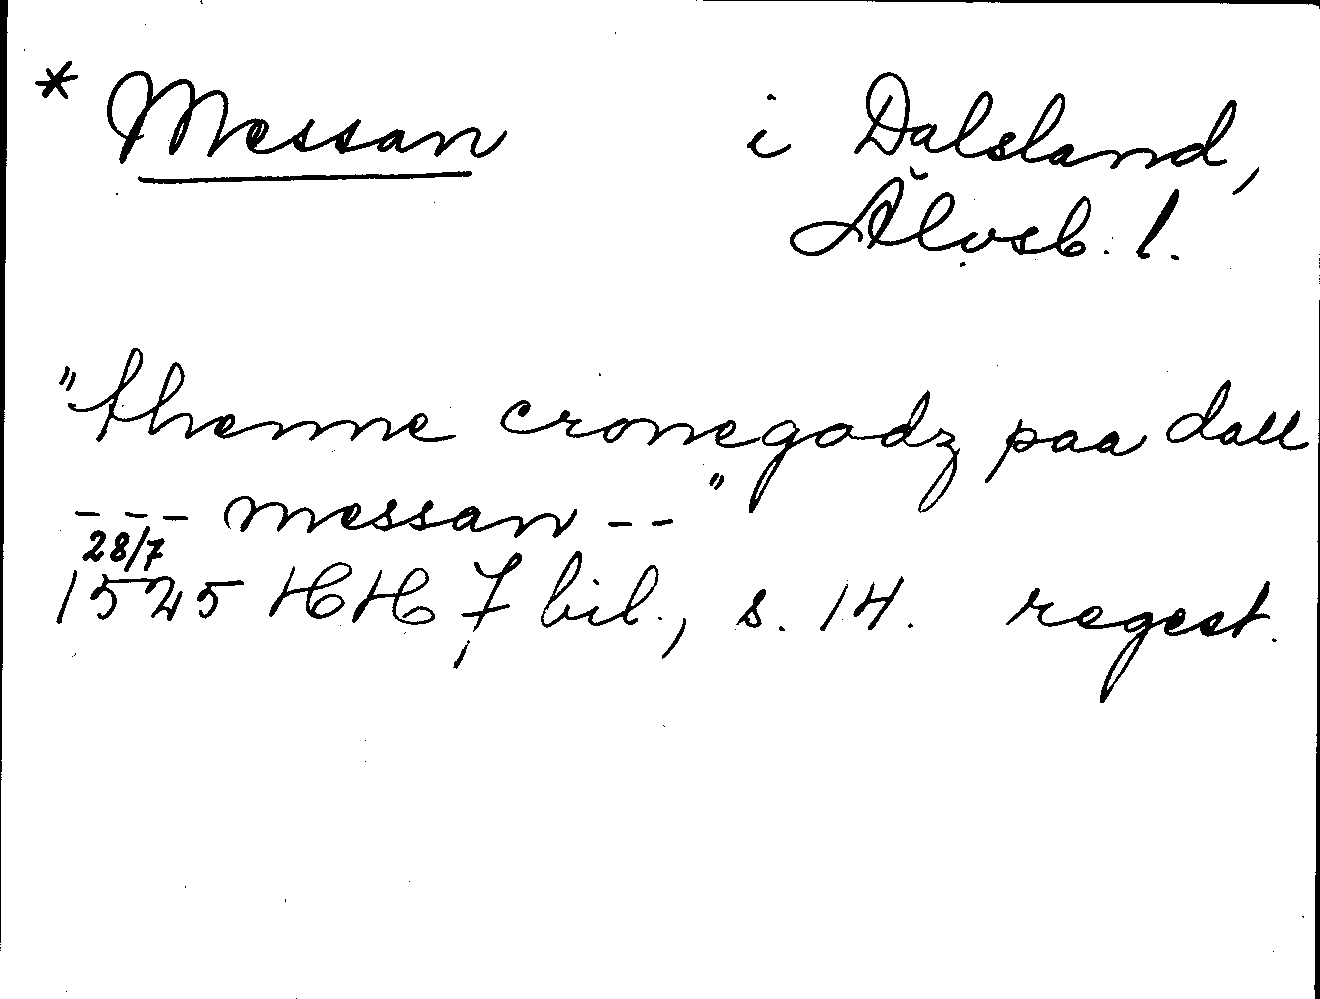 * Messan i Dalsland,
Älvsb. l.
"thenne cronegodz paa dall
--- messan --"
28/7
1525 HH 7 bil., s. 14. regest.